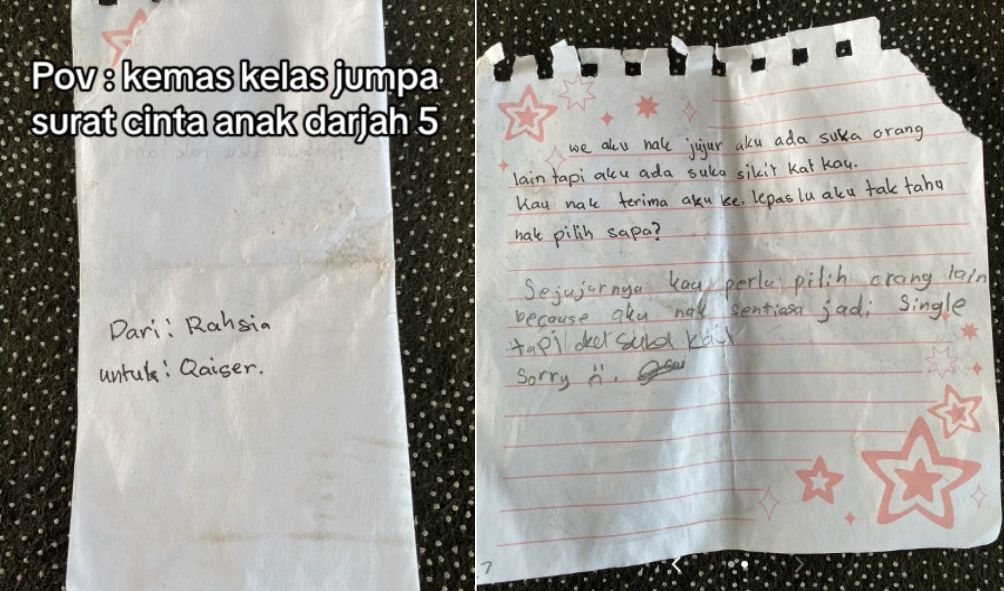 Pov : kemas kelas jumpa
surat cinta anak darjah 5
Dari: Rahsia
untuk: Qaiser.
we aku nak jujur aku ada suka orang
lain tapi aku ada suka sikit kat kau.
Kau nak terima aku ke. lepas lu aku tak tahu
nak pilih sapa?
Sejujurnya kau perlu pilih orang lain
because aku nak sentiasa jadi single
tapi suka
Sorry :(.
7